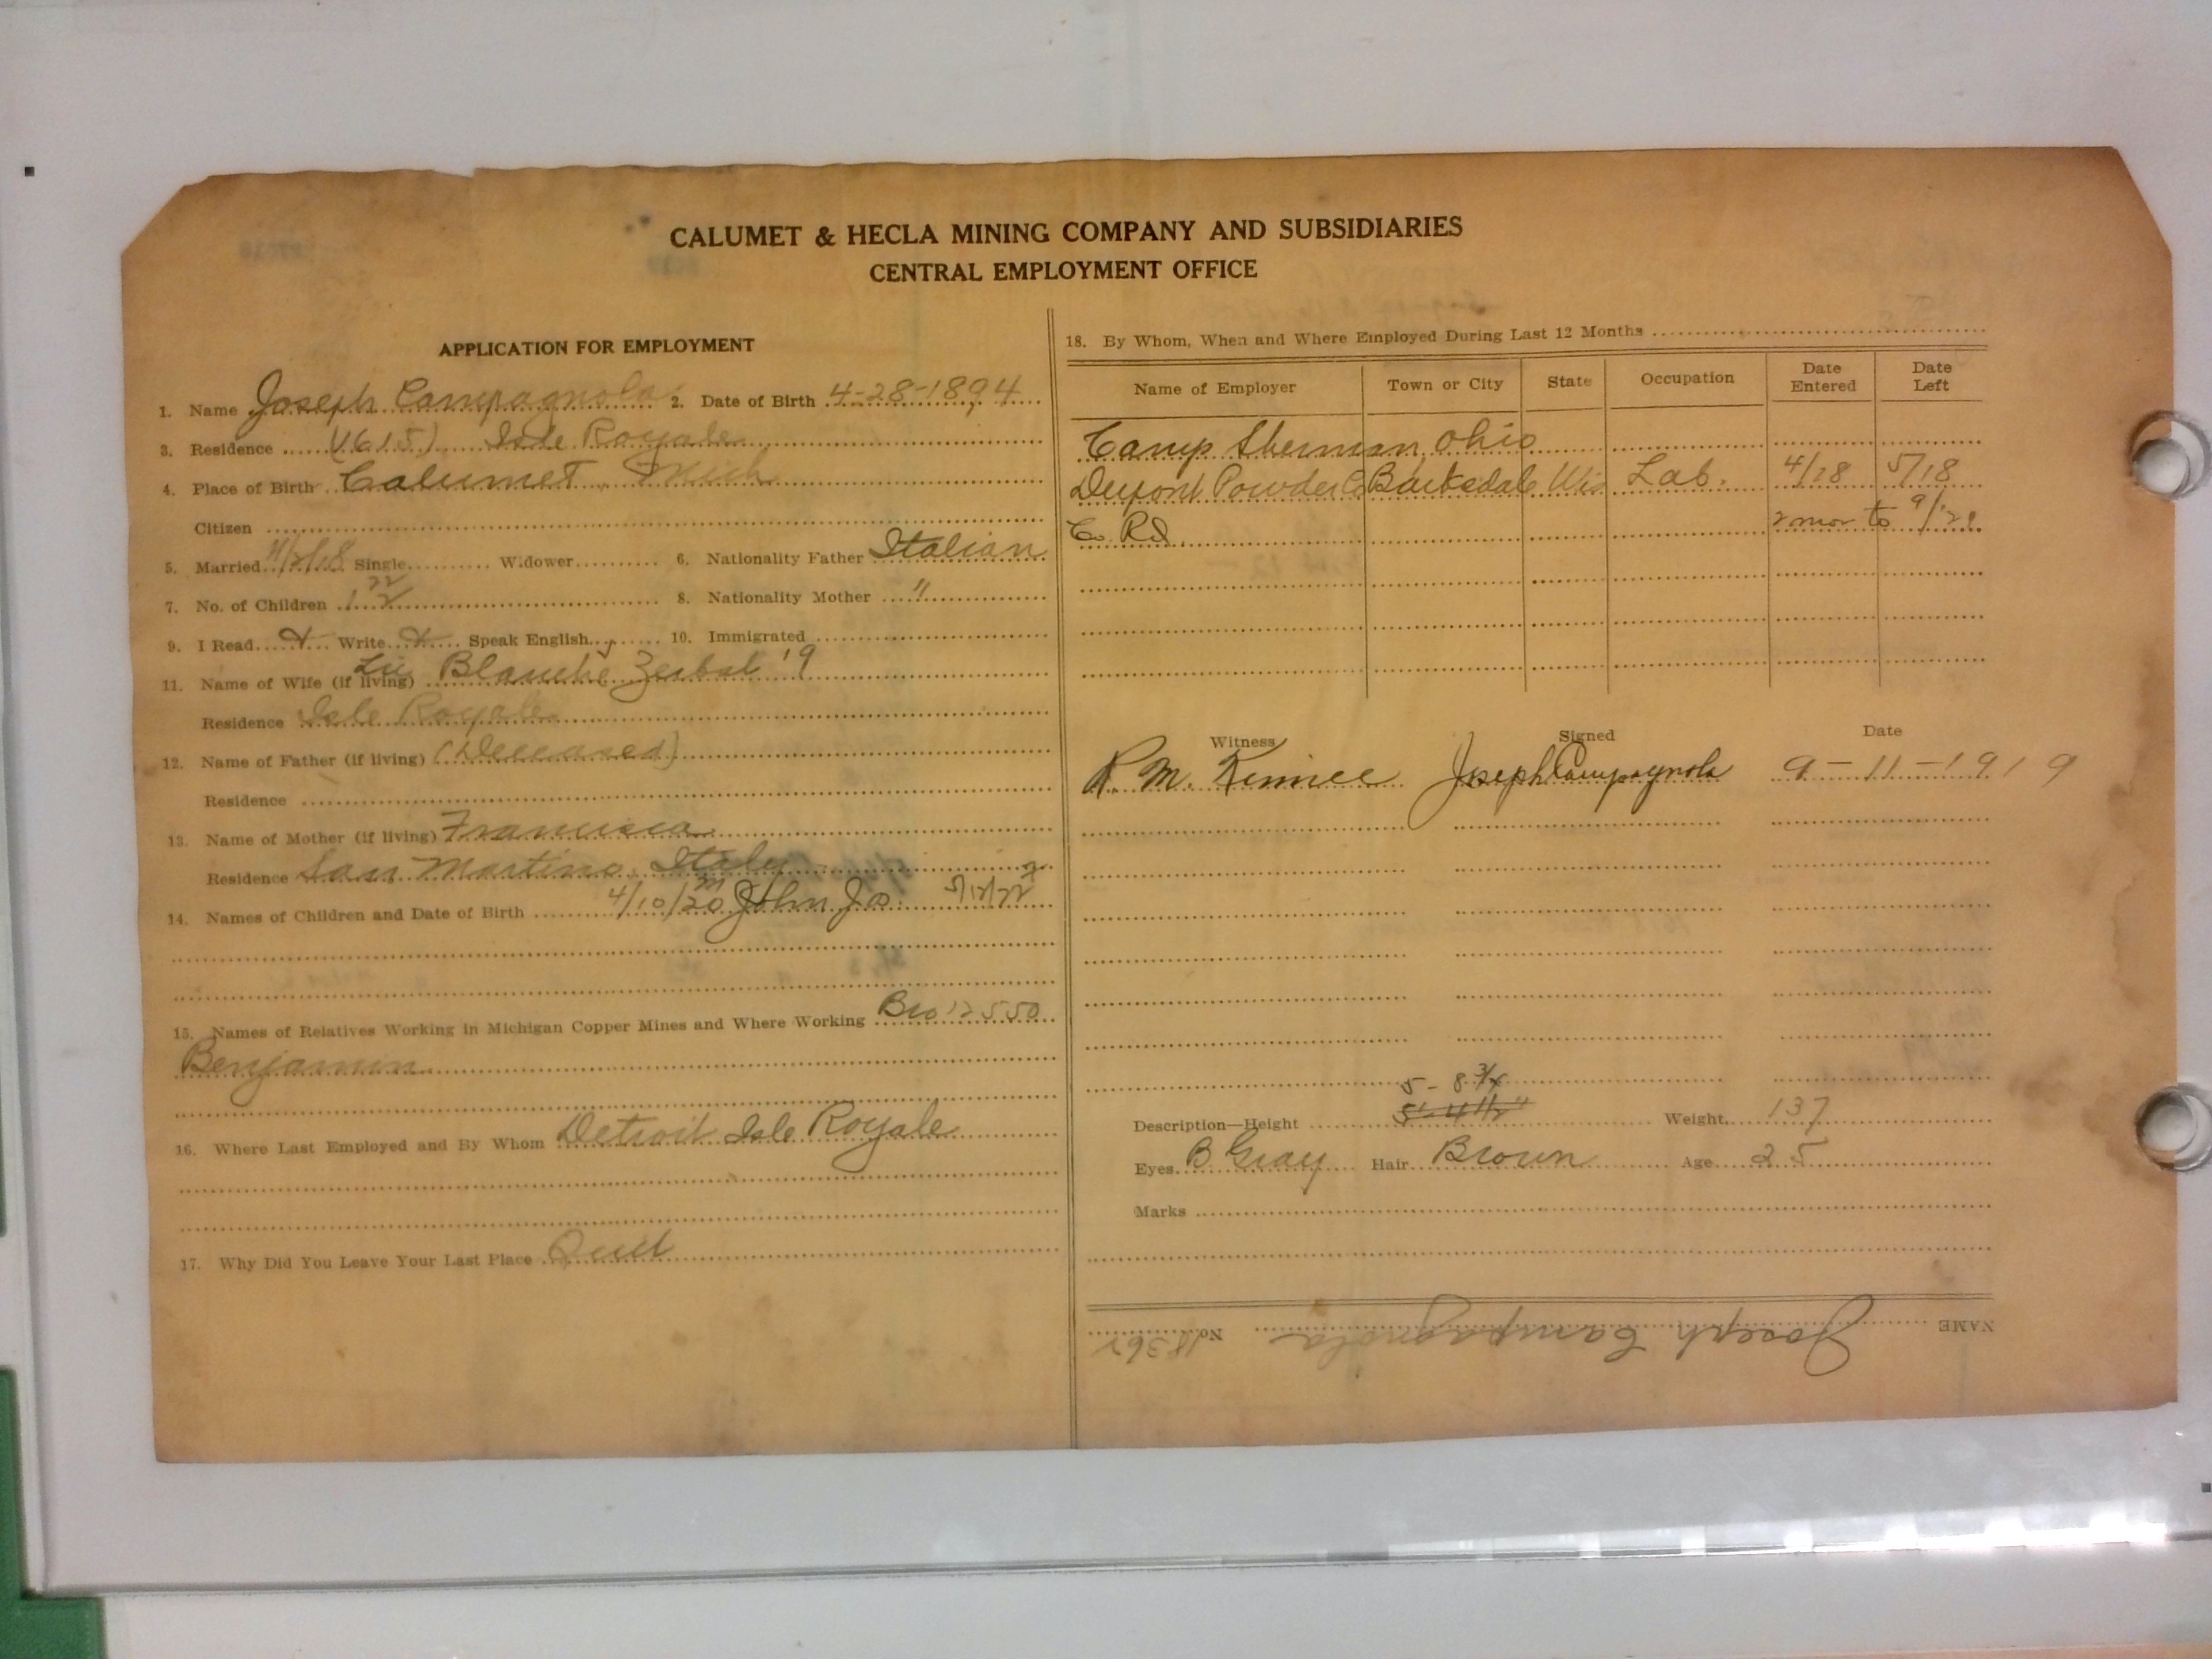 CALUMET & HECLA MINING COMPANY AND SUBSIDIARIES
CENTRAL EMPLOYMENT OFFICE
APPLICATION FOR EMPLOYMENT
1. Name Joseph Campagnola 2. Date of Birth 4-28-1894
3. Residence (1615) Isle Royale
4. Place of Birth Calumet, Mich
Citizen
5. Married 11/2/18 Single Widower 6. Nationality Father Italian
7. No. of Children 1 2 22 8. Nationality Mother "
9. I Read Write Speak English 10. Immigrated
11. Name of Wife (if living) Blanche '9
Residence Isle Royale
12. Name of Father (if living) (Deceased)
Residence
13. Name of Mother (if living) Francisca
Residence San Martino, Italy
14. Names of Children and Date of Birth 4/10/20 m John Jos. 5/12/22
15. Names of Relatives Working in Michigan Copper Mines and Where Working Bro 12550
Benjamin
16. Where Last Employed and By Whom Detroit Isle Royale
17. Why Did You Leave Your Last Place Quit
18. By Whom, When and Where Employed During Last 12 Months
Name of Employer Town or City State Occupation Date Entered Date Left
Camp Sherman, Ohio
Dupont Powder Co Barksdale Wis Lab. 4/18 5/18
C. Rd. 2 mos to
Witness Signed Date
R. M. Joseph Campagnola 9-11-1919
5 - 8 3/4
Description—Height 5' 4 1/2" Weight 137
Eyes B Gray Hair Brown Age 25
Marks
NAME Joseph Campagnola No.